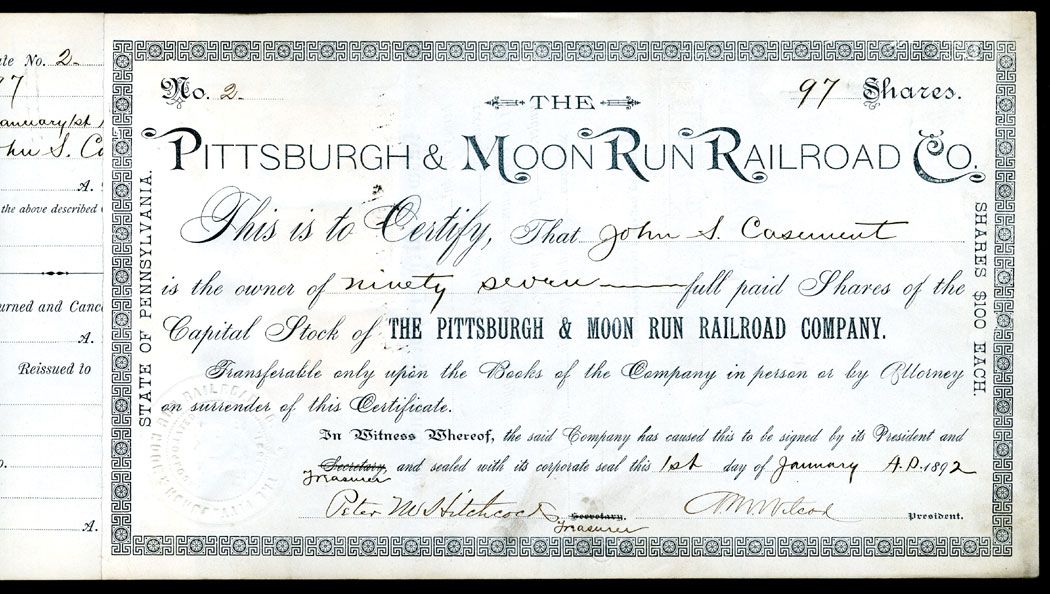 te No. 2
97
January 1st
hn S. Ca
A.
the above described
urned and Canc
A.
Reissued to
A.
No. 2.
97 Shares.
THE
PITTSBURGH & MOON RUN RAILROAD CO.
STATE OF PENNSYLVANIA.
SHARES $100 EACH.
This is to Certify, That John S. Casement
is the owner of ninety seven full paid Shares of the
Capital Stock of THE PITTSBURGH & MOON RUN RAILROAD COMPANY.
Transferable only upon the Books of the Company in person or by Attorney
on surrender of this Certificate.
In Witness Whereof, the said Company has caused this to be signed by its President and
Secretary, and sealed with its corporate seal this 1st day of January A.D. 1892
Treasurer
Peter M Hitchcock Secretary. President.
Treasurer